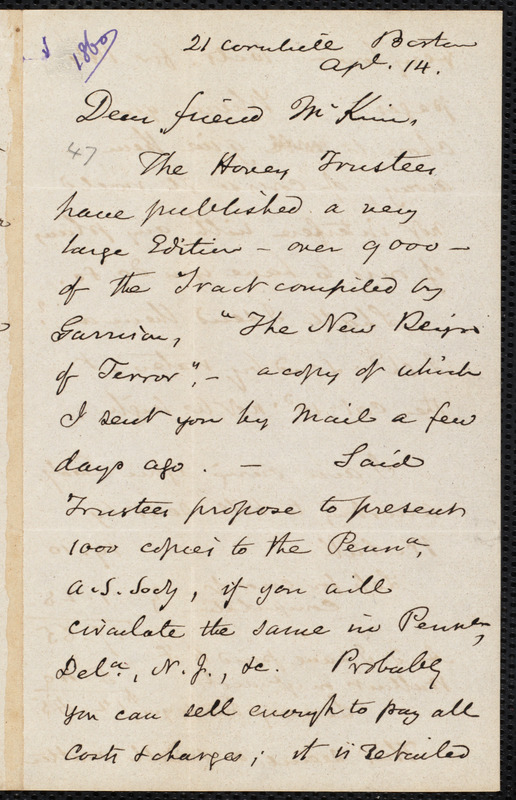 1860
21 Cornhill Boston
Apl. 14.
Dear friend McKim,
47
The Hovey Trustees
have published a very
large Edition – over 9000 –
of the Tract compiled by
Garrison, "The New Reign
of Terror", – a copy of which
I sent you by Mail a few
days ago. — Said
Trustees propose to present
1000 copies to the Penna.
A.S. Socy, if you will
circulate the same in Penna,
Dela., N.J., &c. Probably
you can sell enough to pay all
costs & charges; it is retailed